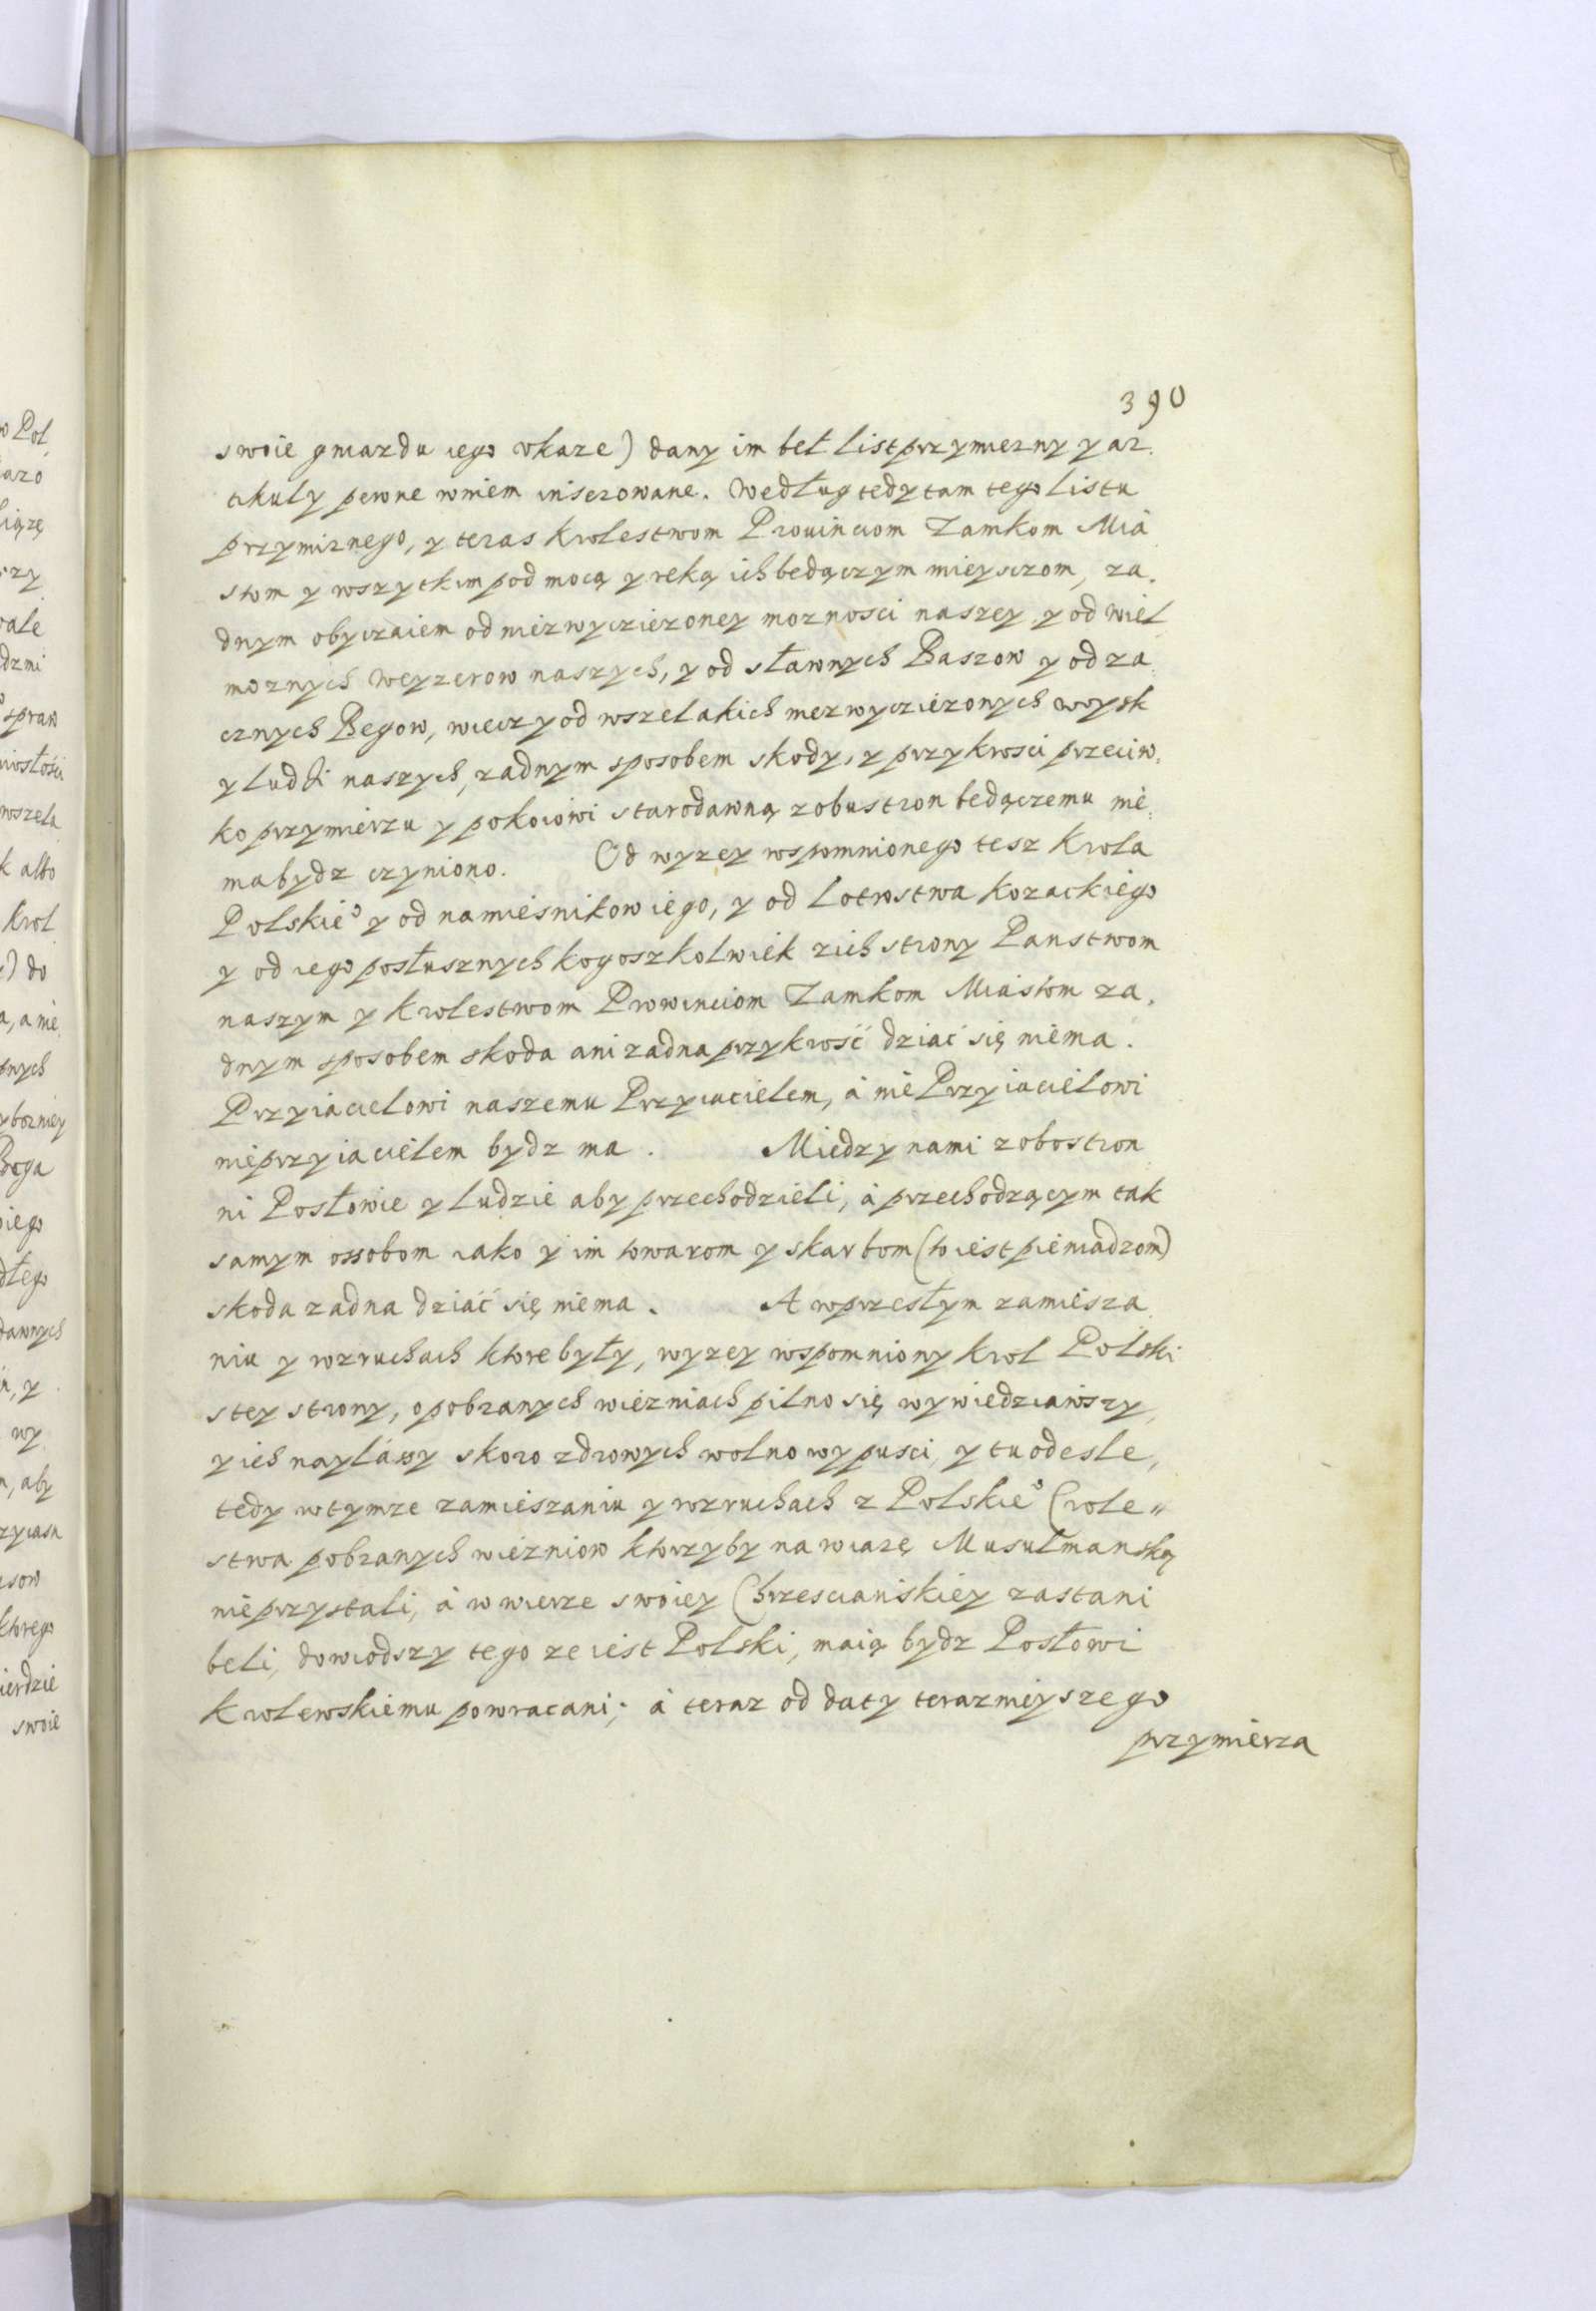 390
swoie gniazdu iego vkaze) dany im beł list przymierny y ar.
tikuły pewne wniem inserowane. Według tedy tam tego listu
przymirnego, y teras krolestwom Prouinciom Zamkom Mia
stom y wszytkim pod mocą y reką ich bedączym mieysczom, za.
dnym obyczaiem od niezwyczięzoney moznosci naszey y od wiel
moznych Weyzerow naszych, y od sławnych Baszow y od za
cznych Begow, wieczy od wszelakich niezwyczięzonych woysk
y ludzi naszych, zadnym sposobem skody, y przykrosci przeciw.
ko przymierzu y pokoiowi starodawną z obustron bedączemu nie.
ma bydz czyniono. Od wyzey wspomnionego tesz krola
Polskie° y od namiesnikow iego, y od lotrostwa kozackiego
y od iego posłusznych kogoszkolwiek z ich strony Panstwom
naszym y krolestwom Prowinciom Zamkom Miastom za.
dnym sposobem skoda ani zadna przykrość dziać się niema.
Przyiacielowi naszemu Przyiacielem, á nie Przyiacielowi
nieprzyiacielem bydz ma. Miedzy nami z obostron
ni Posłowie y ludzie aby przechodzieli, á przechodzącym tak
samym ossobom iako y im towarom y skarbom (to iest pieniadzom)
skoda zadna dziać się niema. A wprzesłym zamiesza
niu y wzruchach ktore były, wyzey wspomniony krol Polski
stey strony, o pobranych wiezniach pilno się wywiedziawszy,
y ich naylászy skoro zdrowych wolno wypusci, y tu odesle,
tedy w tymze zamieszaniu y wzruchach z Polskie° Crole„
stwa pobranych wiezniow ktorzyby na wiarę Musulmanską
nie przystali, á w wierze swoiey Chrzescianskiey zastani
beli, dowiodszy tego ze iest Polski, maią bydz Posłowi
krolewskiemu powracani; á teraz od daty terazmieyszego
przymierza